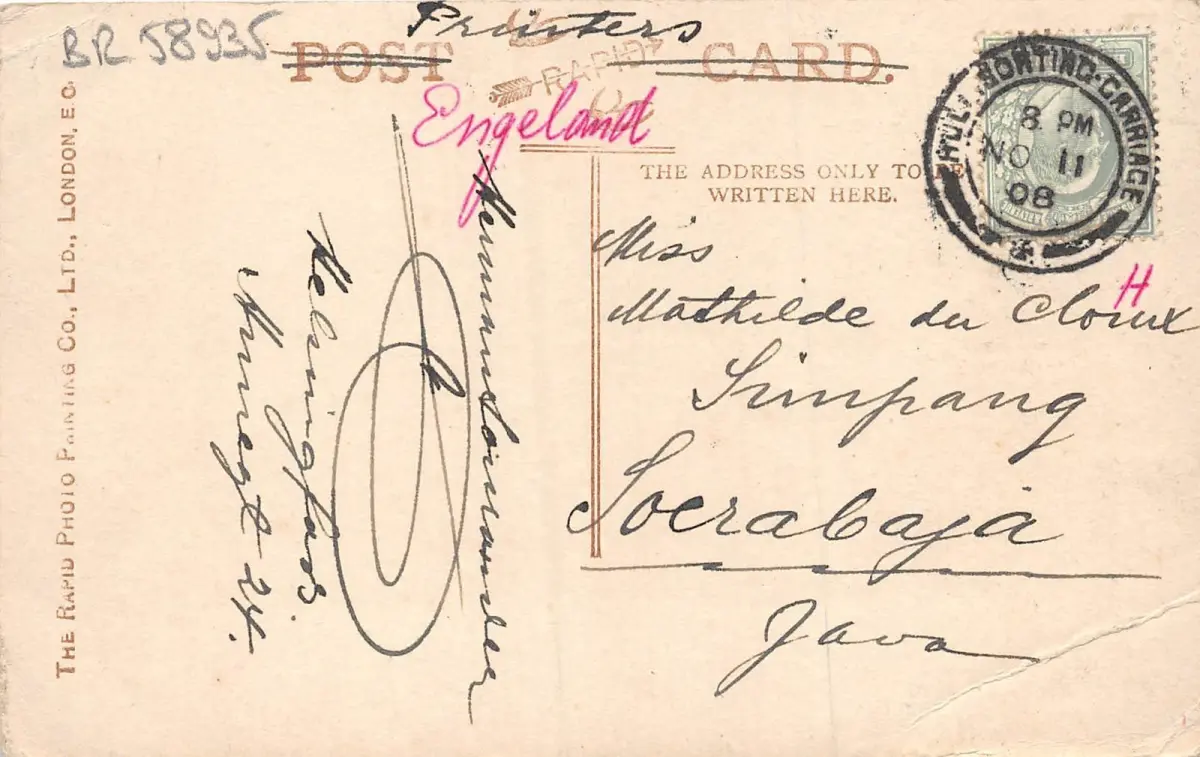 BR 58935
Printers
POST CARD.
RAPID
Engeland
THE ADDRESS ONLY TO BE
WRITTEN HERE.
HULL SORTING-CARRIAGE
8 PM
NO 11
08
H
Miss
Mathilde du Cloux
Simpang
Soerabaja
Java
Herman
Helsingfors
24.
THE RAPID PHOTO PRINTING CO., LTD., LONDON, E.C.